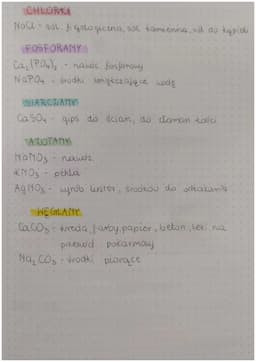 CHLORKI
NaCl - sól fizjologiczna, sól kamienna, sól do kąpieli
FOSFORANY
Ca₃(PO₄)₂ - nawóz fosforowy
NaPO₄ - środki zmiękczające wodę
SIARCZANY
CaSO₄ - gips do ścian, do złamań kości
AZOTANY
NaNO₃ - nawóz
KNO₃ - petda
AgNO₃ - wyrób luster, środków do odkażania
WĘGLANY
CaCO₃ - kreda, farby, papier, beton, leki na
przewód pokarmowy
Na₂CO₃ - środki piorące